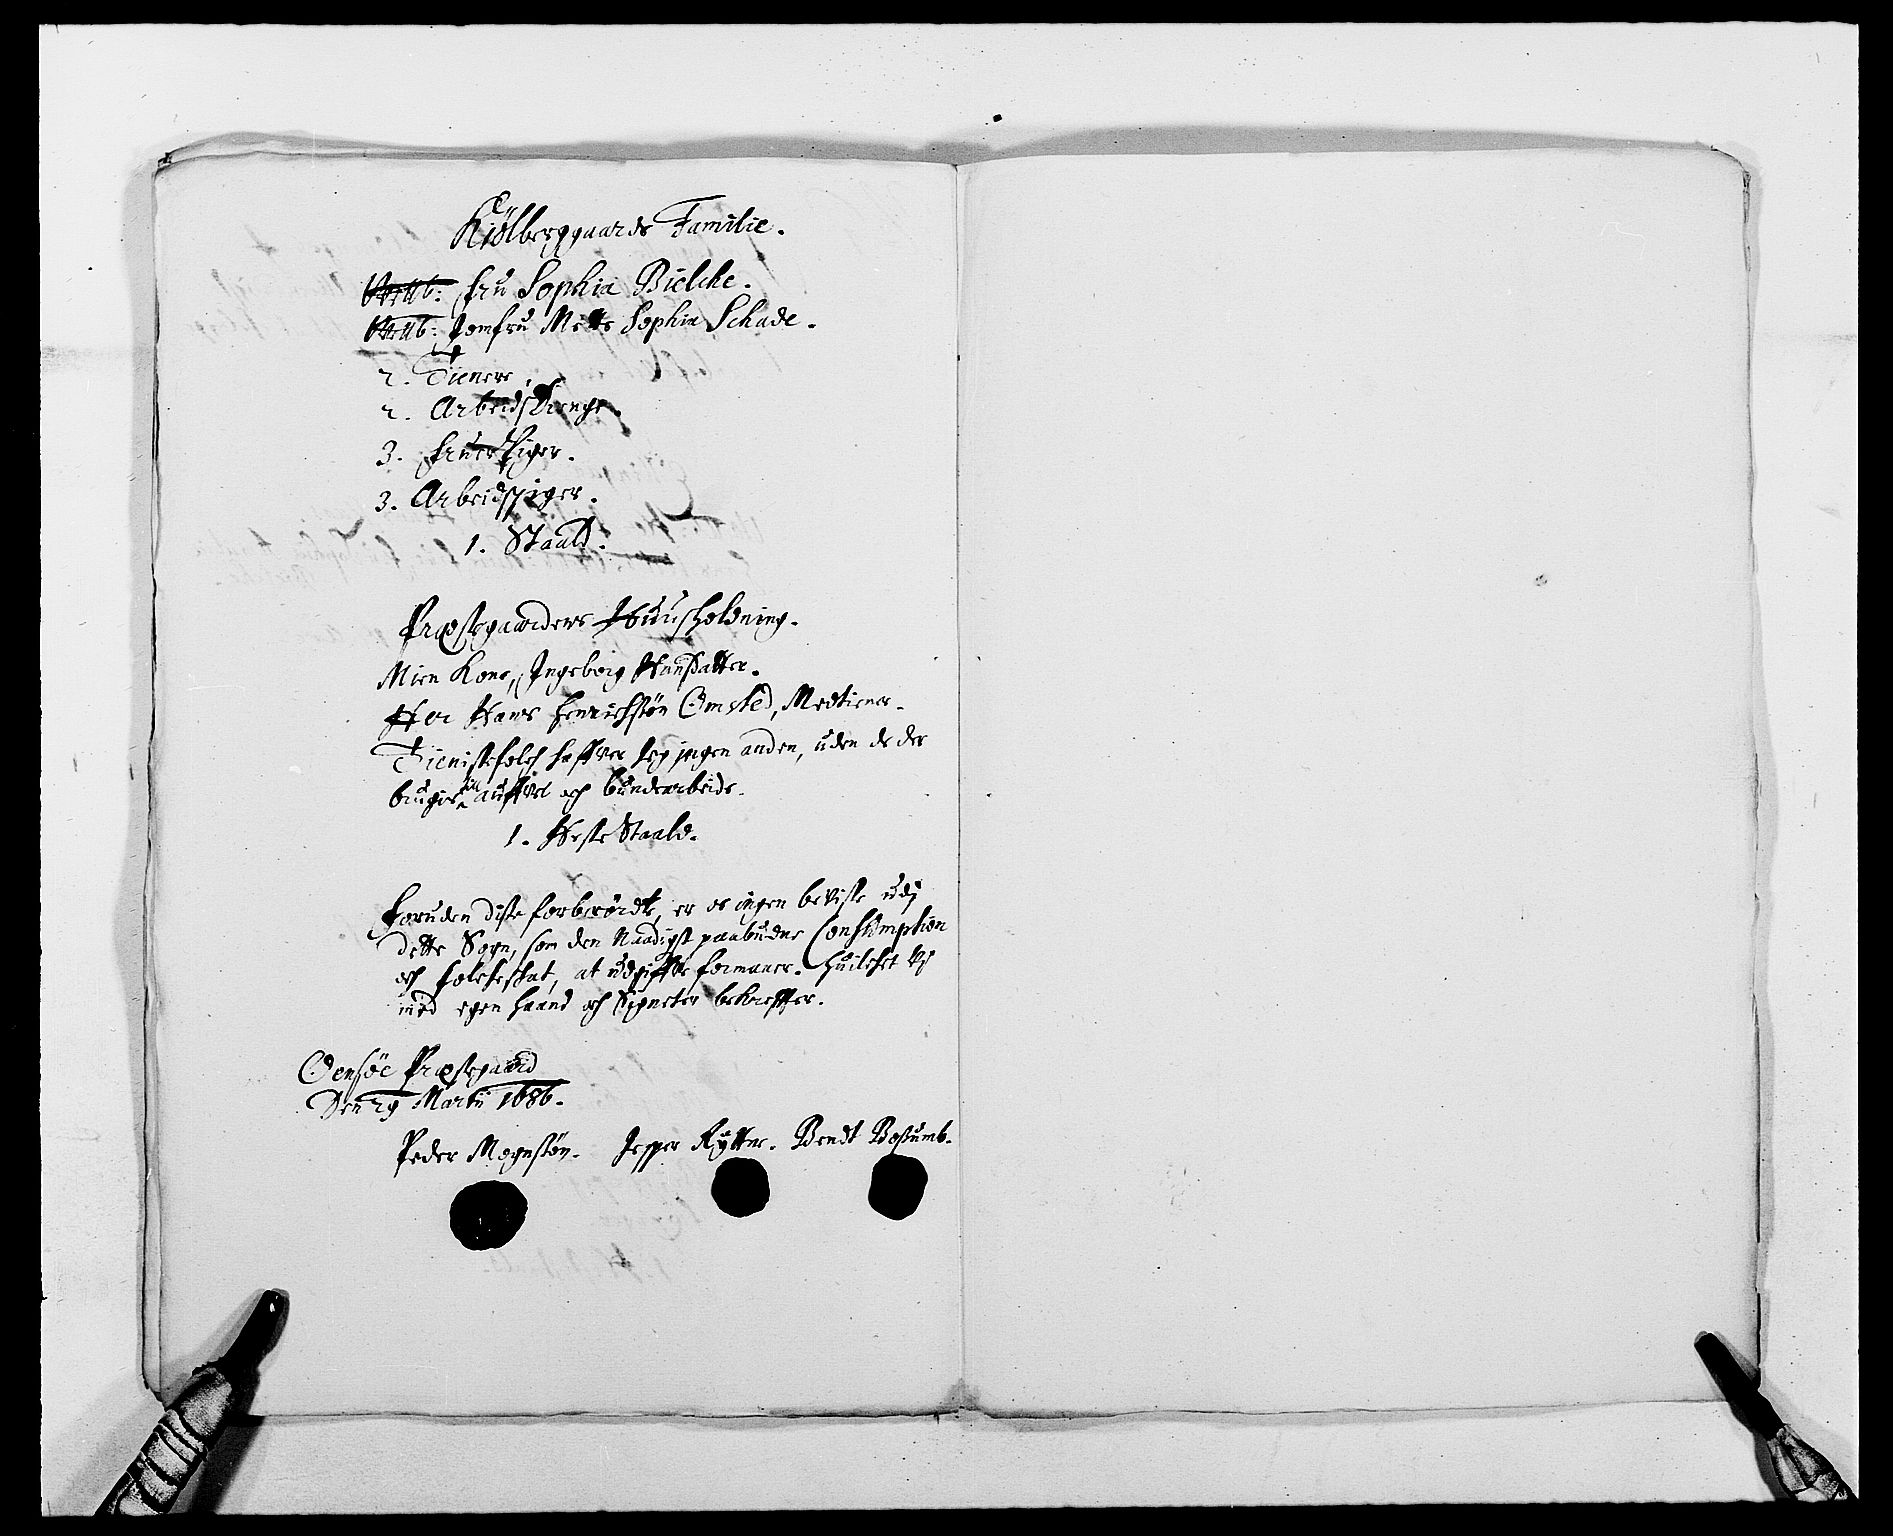 Kiølberggaards Familie.
Welb: Fru Sophia Bielche.
Welb: Jomfru Mette Sophia Schade.
2. Tienere.
2. Arbeids Drenge.
3. Fruers Piger.
3. Arbeidspiger.
1. Staald.
Præstegaardens Huusholdning.
Mien Kone, Ingeborg Hansdatter.
Her Hans Henrichsøn Omsted, Medtiener.
Tienistefolch haffver Jeg ingen anden, uden de der
bruges till auffvel och bundearbeide.
1. Heste Staald.
Foruden disse forberørdte, er os ingen beviste udj
dette Sogn, som den Naadigst paabudne Consumption
och folcheskat, at udgiffve formaaer. Huilchet Vj
med egen haand och Signeter bekreffter.
Oensøe Præstegaard
Den 29 Martii 1686.
Peder Mognsøn. Jesper Rytter. Bendt